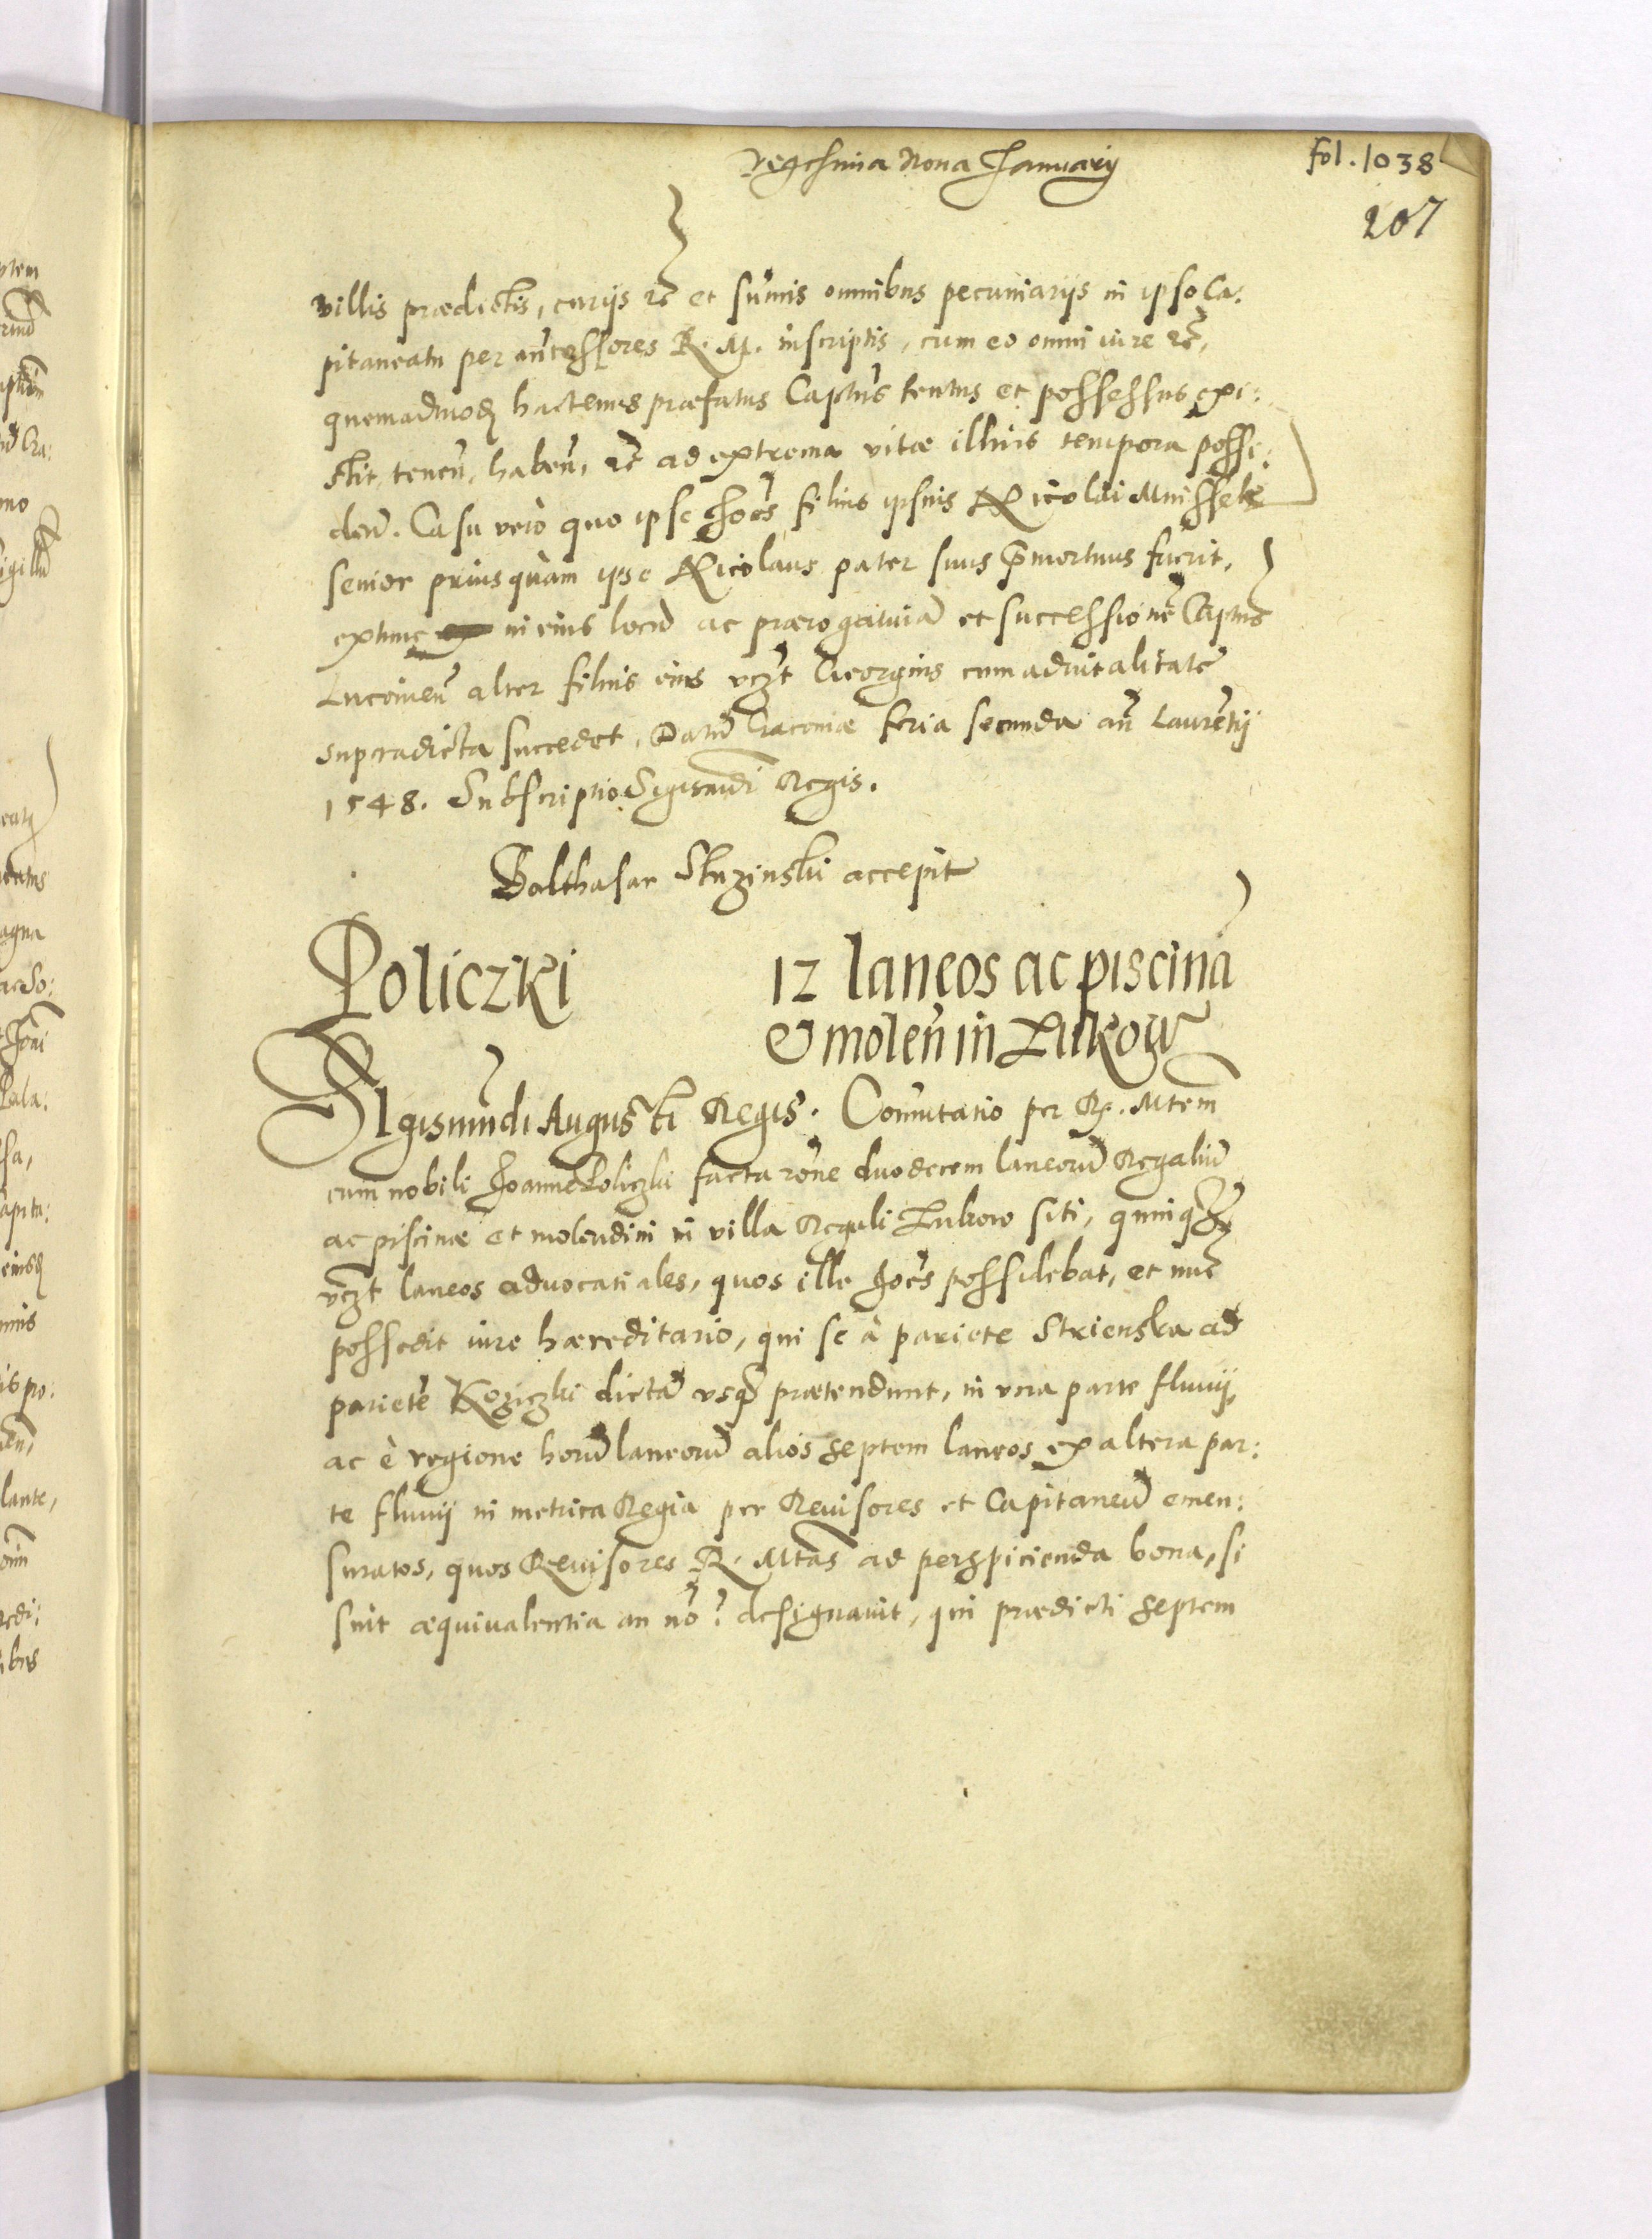 vegesima Nona January
fol. 1038
207
villis prædictis, curijs etc̃ et sum̃is omnibus pecuniarijs in ipso Ca:
pitaneatu per añtecessores R. M. inscriptis, cum eo omni iure etc̃,
quemadmodꝫ hactenus præfatus Captũs tentus et possessus exi:
stit, tenen̄, haben̄, etc̃ ad extrema vitæ illius tempora possi:
den̄. Casu verò quo ipse Joẽs filius ipsius Nicolai Mnissek
senior priusquàm ipse Nicolaus pater suus p̄mortuus fuerit,
extunc in eius locũ ac prærogatiuã et successionẽ Captus
Lucouien̄ alter filius eius vczt Georgius cum aduitalitate
supradicta succedet, Datũ Cracouiæ feria secunda añ Laurẽtij
1548. Subscriptio Sigismũdi Regis.
Balthasar Stuzinski accepit
Policzki
12 laneos ac piscinã
& molen̄ in Lukow
SIgismũndi Augusti Regis. Com̃utatio per R. Mtem
cum nobili Joanne Policzki facta rõne duodecem laneorũ Regaliũ
ac piscinæ et molendini in villa Regali Lukow siti, quinqꝫ
vczt laneos aduocatiales, quos ille Joẽs possidebat, et nũc
possedit iure hæreditario, qui se à pariete Strienska ad
parietẽ Koziczki dictã vsqꝫ prætendunt, in vna parte fluuij,
ac è regione horũ laneorũ alios septem laneos ex altera par:
te fluuij in metrica Regia per Reuisores et Capitaneũ emen:
suratos, quos Reuisores R. Mtãs ad perspicienda bona, si
sint æquiualentia an nõ? designauit, qui prædicti septem